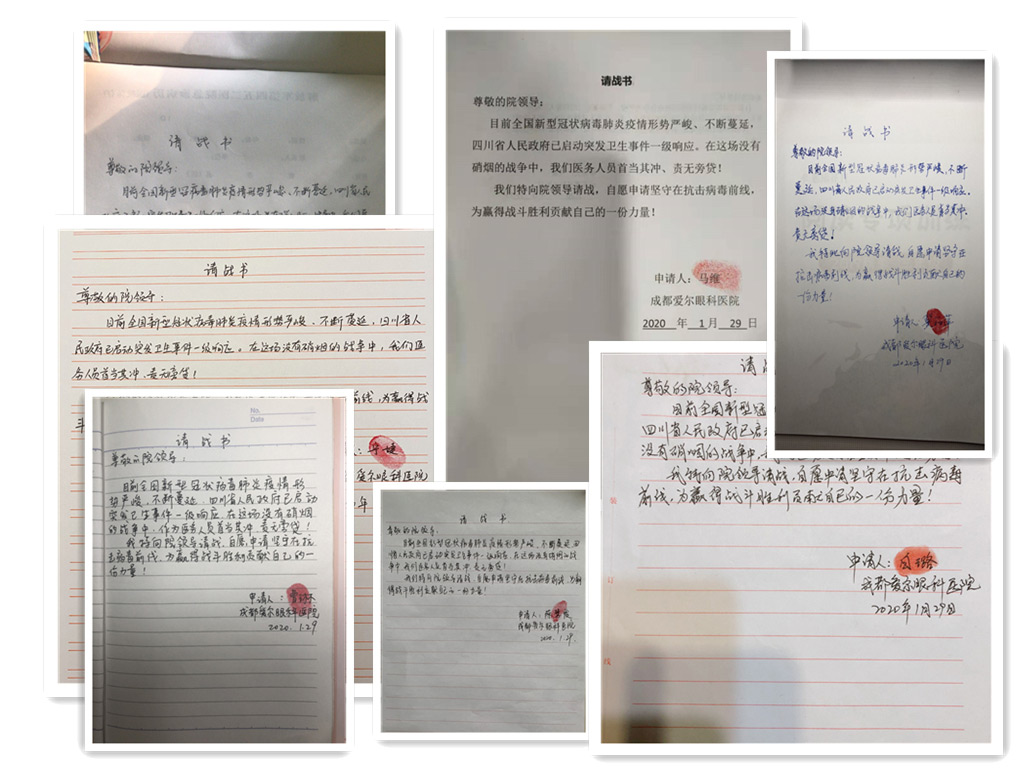 请战书
尊敬的院领导：
目前全国新型冠状病毒肺炎疫情形势严峻、不断蔓延，四川省人民
请战书
尊敬的院领导：
目前全国新型冠状病毒肺炎疫情形势严峻、不断蔓延，
四川省人民政府已启动突发卫生事件一级响应。在这场没有
硝烟的战争中，我们医务人员首当其冲、责无旁贷！
我们特向院领导请战，自愿申请坚守在抗击病毒前线，
为赢得战斗胜利贡献自己的一份力量！
申请人：马维
成都爱尔眼科医院
2020 年 1月 29 日
请战书
尊敬的院领导：
目前全国新型冠状病毒肺炎疫情形势严峻、不断
蔓延，四川省人民政府已启动突发卫生事件一级响应，
在这场没有硝烟的战争中，我们医务人员首当其冲、
责无旁贷！
我特地向院领导请战，自愿申请坚守在
抗击病毒前线，为赢得战斗胜利贡献自己的
一份力量！
申请人
成都爱尔眼科医院
2020年1月29日
请战书
尊敬的院领导：
目前全国新型冠状病毒肺炎疫情形势严峻、不断蔓延，四川省人
民政府已启动突发卫生事件一级响应。在这场没有硝烟的战争中，我们医
务人员首当其冲、责无旁贷！
前线，为赢得战
斗
爱尔眼科医院
年
No.
Date
请战书
尊敬的院领导：
目前全国新型冠状病毒肺炎疫情形
势严峻、不断蔓延，四川省人民政府已启动
突发卫生事件一级响应，在这场没有硝烟
的战争中，作为医务人员首当其冲、责无旁贷！
我特向院领导请战，自愿申请坚守在抗
击病毒前线，为赢得战斗胜利贡献自己的一
份力量！
申请人：
成都爱尔眼科医院
2020.1.29
请战书
尊敬的院领导：
目前全国新型冠状病毒肺炎疫情形势严峻、不断蔓延，四
川省人民政府已启动突发卫生事件一级响应，在这场没有硝烟的战
争中，我们医务人员首当其冲、责无旁贷！
我们特向院领导请战，自愿申请坚守在抗击病毒前线，为赢
得战斗胜利贡献自己一份力量！
申请人：
成都爱尔眼科医院
2020.1.29.
请战
尊敬的院领导：
目前全国新型冠
四川省人民政府已启
没有硝烟的战争中，
我特向院领导请战，自愿申请坚守在抗击病毒
前线，为赢得战斗胜利贡献自己的一份力量！
申请人：白璐
成都爱尔眼科医院
2020年1月29日
装
订
线